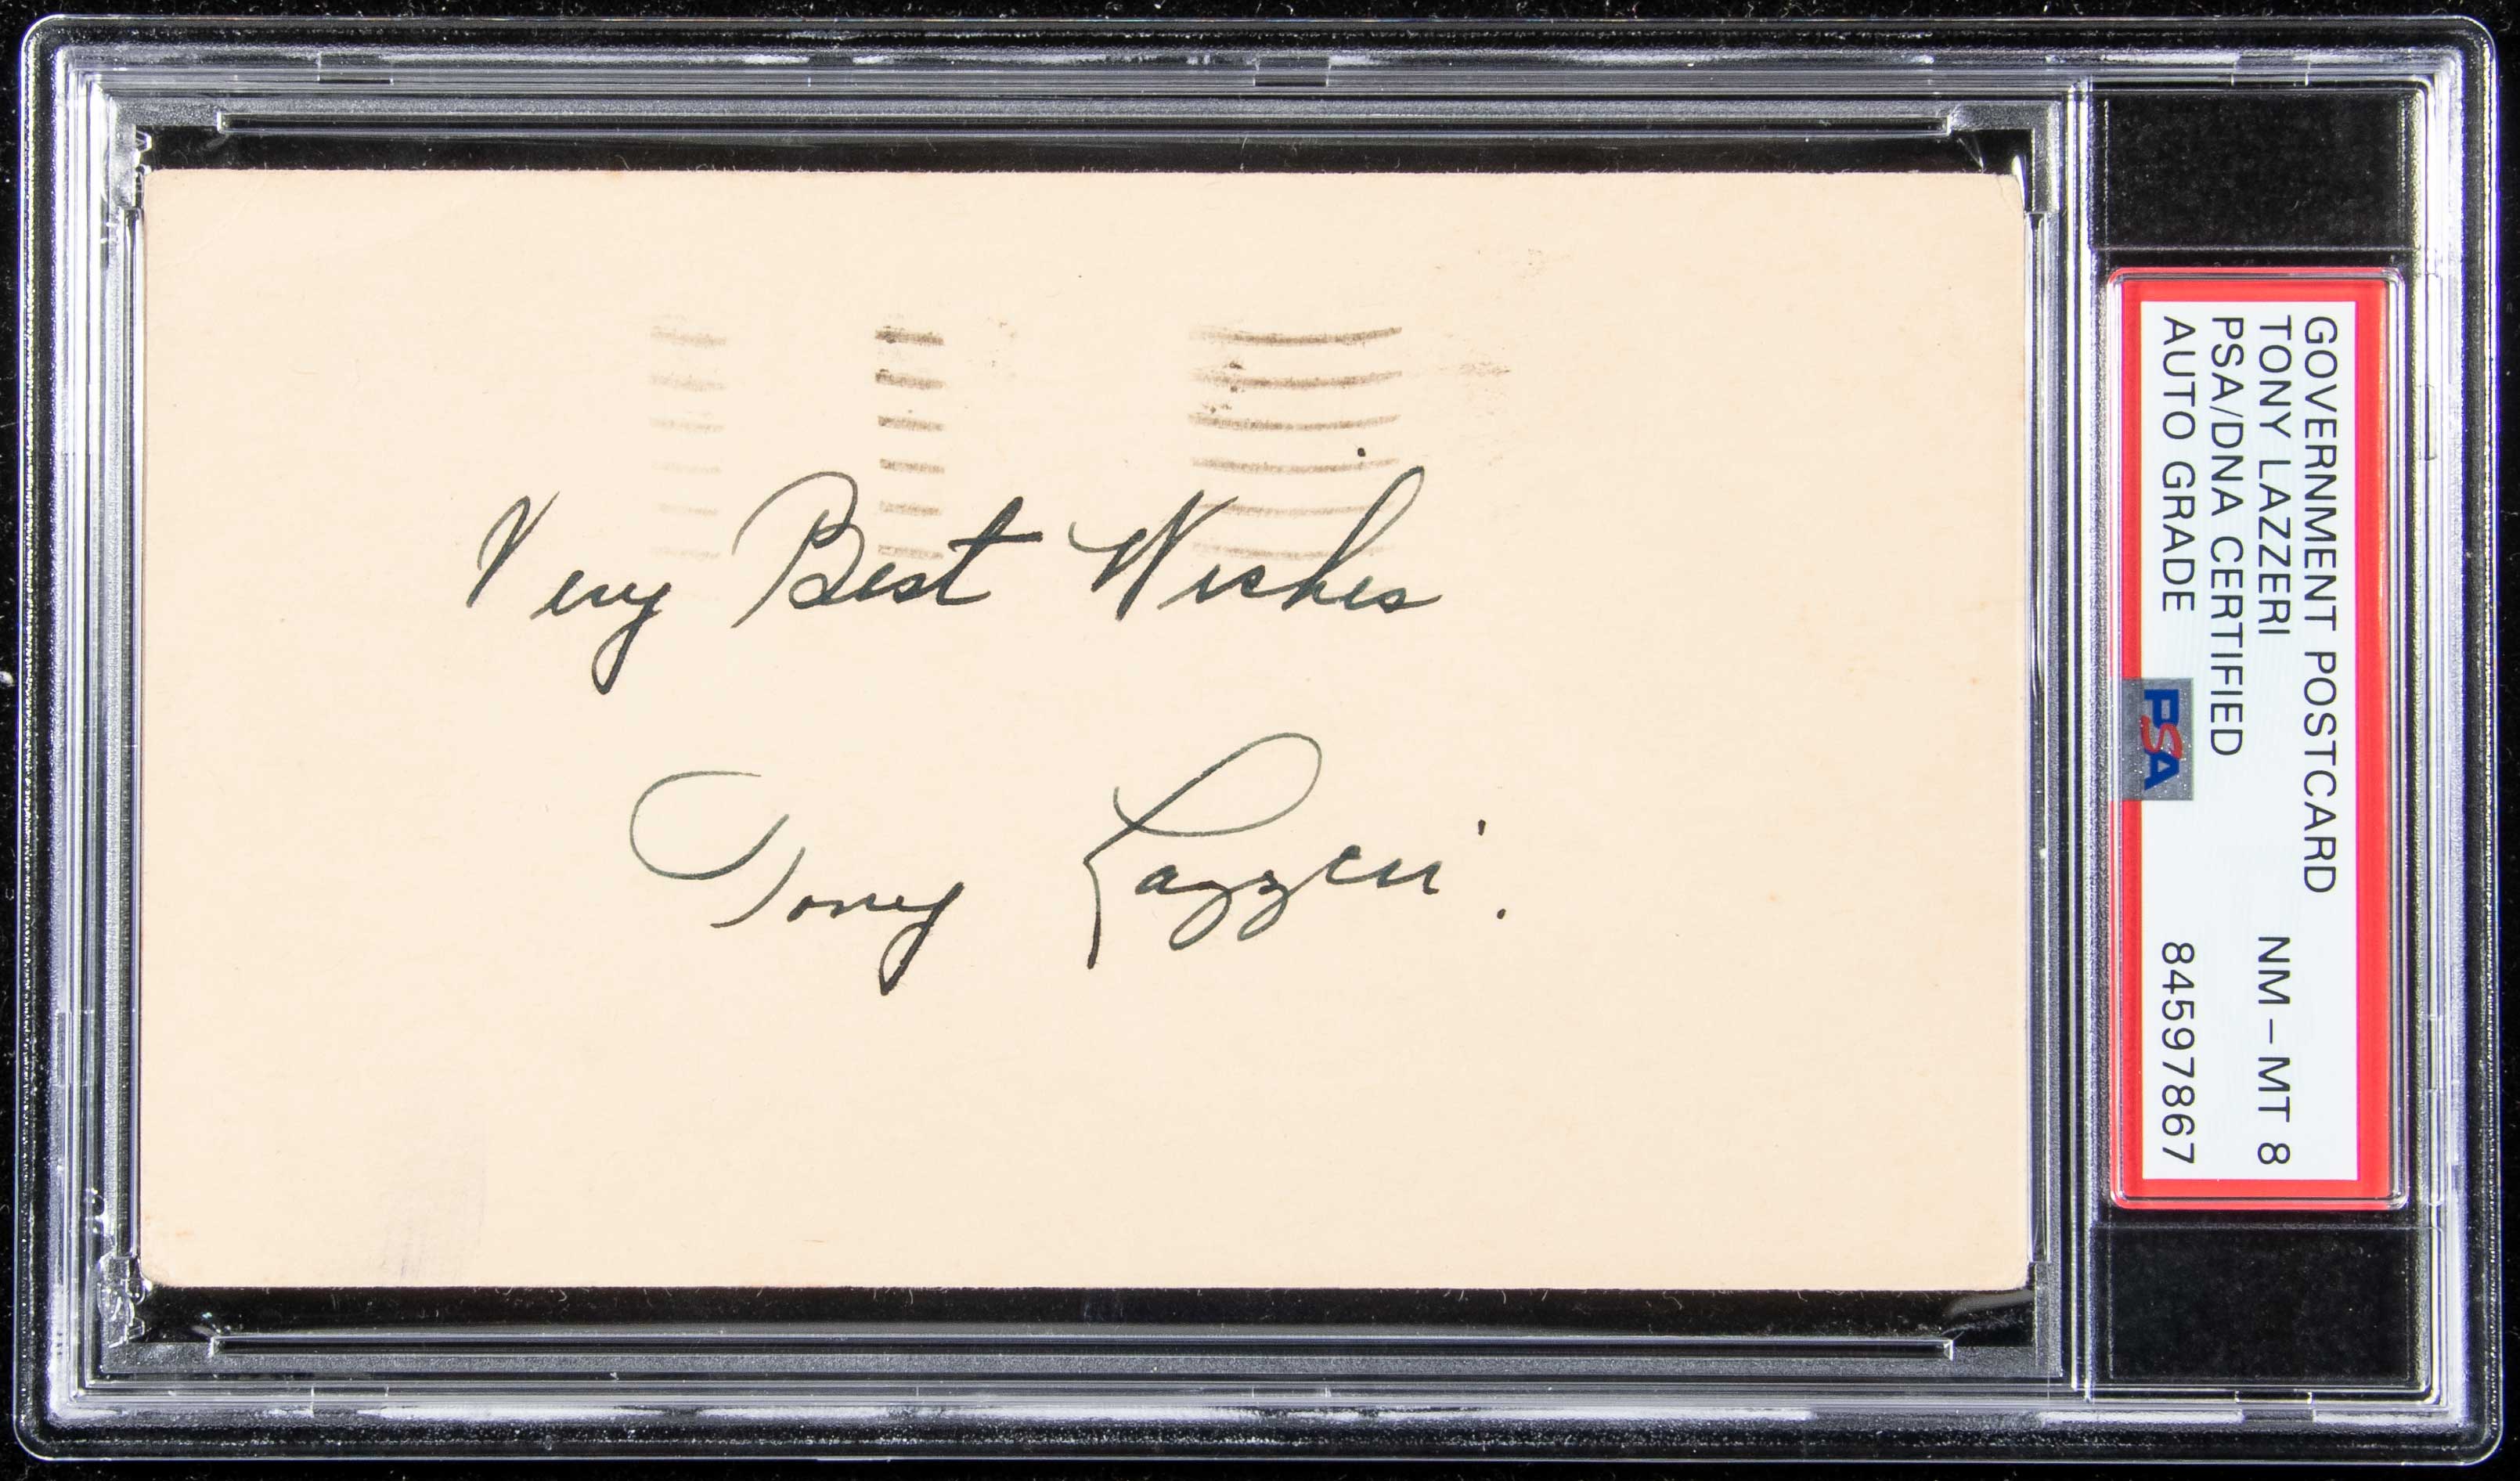 Very Best Wishes
Tony Lazzeri.
GOVERNMENT POSTCARD
TONY LAZZERI NM-MT 8
PSA/DNA CERTIFIED
AUTO GRADE 84597867
PSA